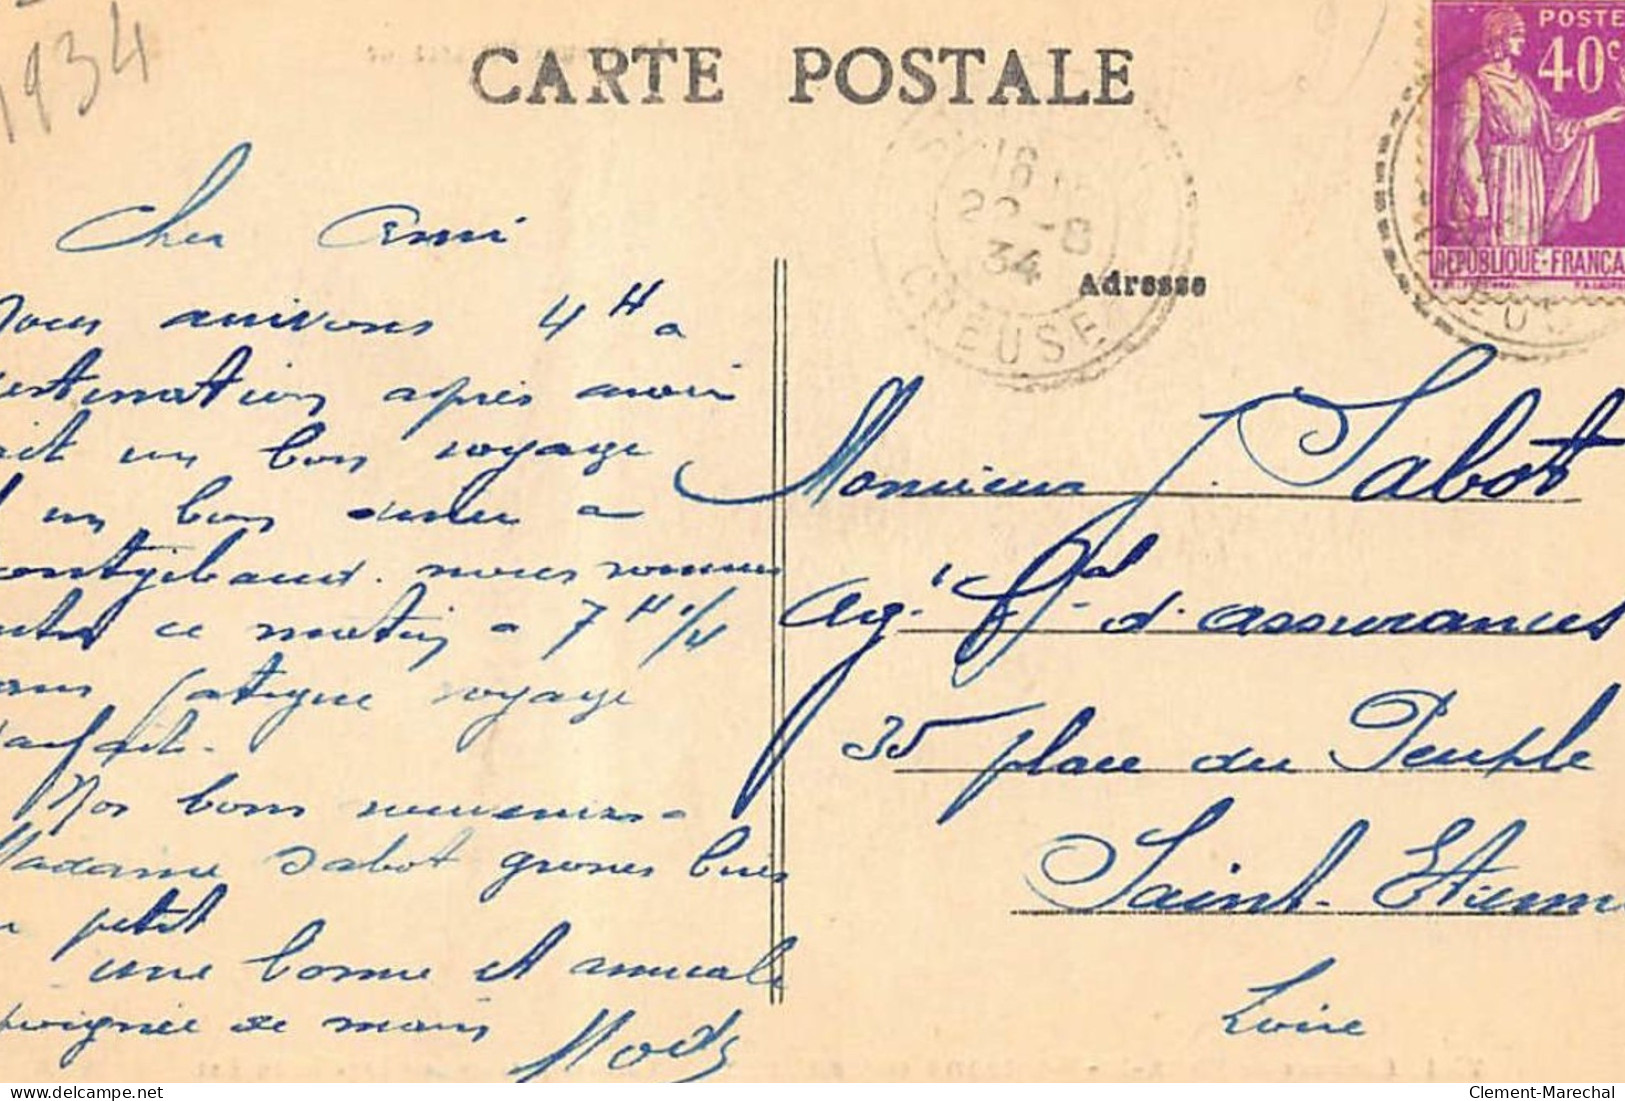 1934
CARTE POSTALE
POSTE
40c
REPUBLIQUE-FRANCA
18
22-8
34
CREUSE
Adresse
Cher Ami
Nous arrivons 4 H a
estination après avoir
ait un bon voyage
un bon diner a
ontgibaud. nous sommes
ce matin a 7 H 1/4
ans fatigue voyage
arfait.
Nos bons souvenirs a
Madame Sabot grosses bises
petit
une bonne et amicale
poignée de main
Monsieur J. Sabot
Ag. Gal d'assurances
35 place du Peuple
Saint-Etienn
Loire
Clement-Marechal